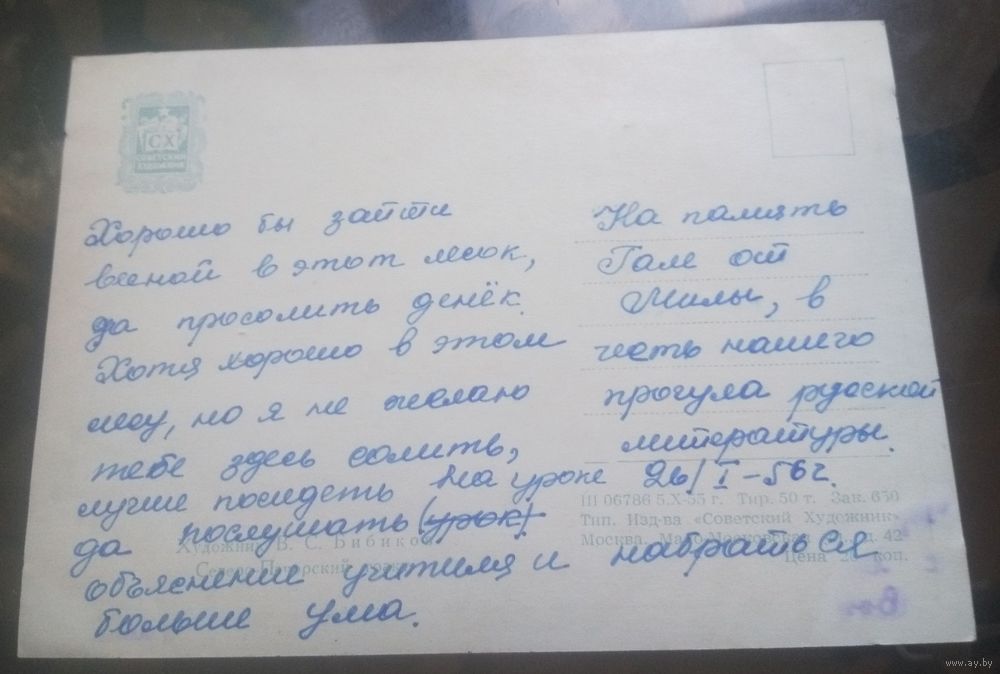 СХ
СОВЕТСКИЙ
ХУДОЖНИК
Хорошо бы зайти
весной в этот лесок,
да просолить денёк.
Хотя хорошо в этом
лесу, но я не желаю
тебе здесь солить,
лучше посидеть на уроке
да послушать (урок)
объяснение учителя и набраться
больше ума.
На память
Гале от
Милы, в
честь нашего
прогула русской
литературы.
26/I-56г.
Художник В. С. Бибиков
Ш 06786 5.X-55 г. Тир. 50 т. Зак. 650
Тип. Изд-ва «Советский Художник»
Москва, Мало-Московская д. 42
Цена коп.
www.ay.by